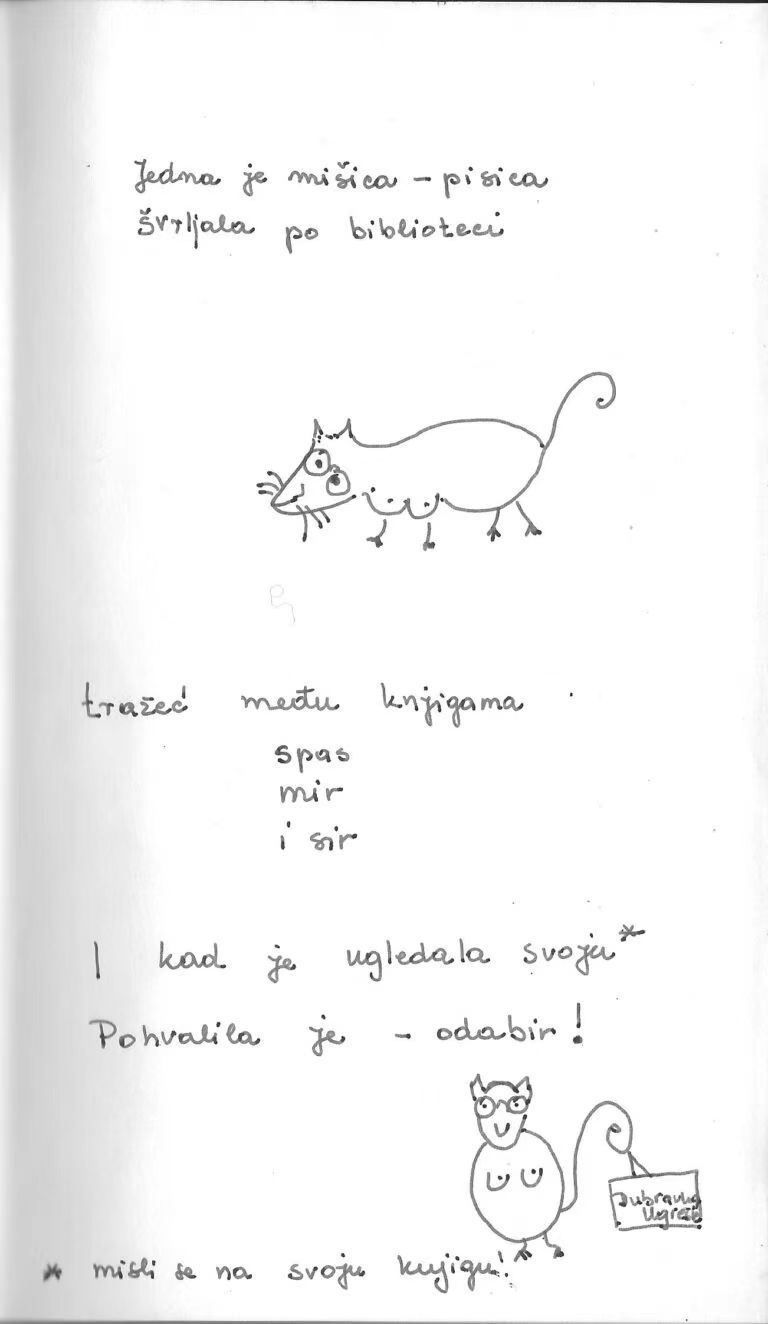 Jedna je mišica – pisica
švrljala po biblioteci
tražeć među knjigama
spas
mir
i sir
I kad je ugledala svoju*
Pohvalila je – odabir!
Dubravka
Ugrešić
* misli se na svoju knjigu!